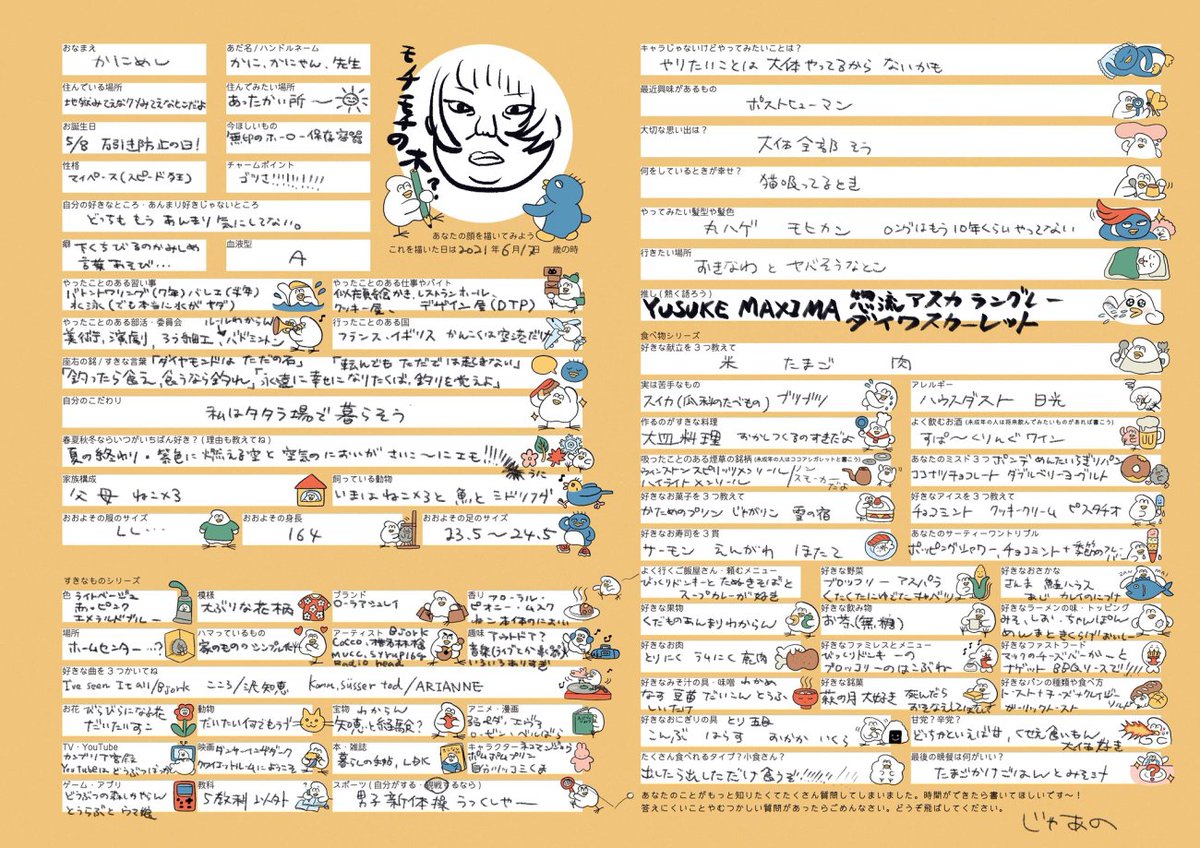 おなまえ
かにめし
あだ名/ハンドルネーム
かに、かにやん、先生
住んでいる場所
住んでみたい場所
あったかい所〜
お誕生日
5/8 万引き防止の日!
今ほしいもの
無印のホーロー保存容器
性格
マイペース(スピード狂)
チャームポイント
ゴリさ!!!!!!!!
自分の好きなところ・あんまり好きじゃないところ
どっちも もう あんまり 気にしてない。
癖
下くちびるのかみしめ
言葉あそび…
血液型
A
モチモチの木?
あなたの顔を描いてみよう
これを描いた日は2021年6月12日 歳の時
やったことのある習い事
バトントワリング(7年)バレエ(半年)
水泳(でも本当に水がヤダ)
やったことのある仕事やバイト
似顔絵かき、レストランホール、
クッキー屋、デザイン屋(DTP)
やったことのある部活・委員会
ルールわからん
美術、演劇、ろう細工、バドミントン
行ったことのある国
フランス、イギリス かんこくは空港だけ
座右の銘/すきな言葉
「ダイヤモンドは ただの石」 「転んでも ただでは起きない」
「釣ったら食え、食うなら釣れ」「永遠に幸せになりたくば、釣りを覚えよ」
自分のこだわり
私はタタラ場で暮らそう
春夏秋冬ならいつがいちばん好き?(理由も教えてね)
夏の終わり・紫色に燃える空と空気のにおいがさいこーにエモ!!!
家族構成
父 母 ねこ×3
飼っている動物
いまはねこ×3と魚とミドリフグ
おおよその服のサイズ
LL…
おおよその身長
164
おおよその足のサイズ
23.5〜24.5
すきなものシリーズ
色
ライトベージュ
赤っピンク
エメラルドブルー
模様
大ぶりな花柄
ブランド
ローラアシュレイ
香り
フローラル・
ピオニー・ムスク
ねこ本体のにおい
場所
ホームセンター…?
ハマっているもの
アーティスト
Bjork
Cocco、椎名林檎
MUCC、syrup16g
Radio head
趣味
アウトドア?
音楽(ライブとか楽器)
いろいろありすぎ
好きな曲を3つかいてね
I've seen It all/Bjork こころ/沢知恵 Komm,süsser tod/ARIANNE
お花
びらびらになる花
だいたいすこ
動物
だいたいイマでもうプー
宝物
わからん
知恵と経験?
アニメ・漫画
弱ペダ、エヴァ
ローゼン・ベルばら
TV・YouTube
カンブリア宮殿
YouTubeはどうぶつばっか
映画
ダンサーインザダーク
クワイエットルームにようこそ
本・雑誌
暮らしの手帖、LDK
キャラクター
ネコマンジュウ
ポムポムプリン
自分ツッコミくま
ゲーム・アプリ
どうぶつの森しかやらん
とうらぶと ウマ娘
教科
5教科以外
スポーツ(自分がする・観戦するなら)
男子新体操 うっくしゃー
キャラじゃないけどやってみたいことは?
やりたいことは 大体やってるから ないかも
最近興味があるもの
ポストヒューマン
大切な思い出は?
大体全部そう
何をしているときが幸せ?
猫吸ってるとき
やってみたい髪型や髪色
丸ハゲ モヒカン ロングはもう10年くらいやってない
行きたい場所
おきなわとヤバそうなとこ
推し(熱く語ろう)
YUSUKE MAXIMA 惣流アスカラングレー
ダイワスカーレット
食べ物シリーズ
好きな献立を3つ教えて
米 たまご 肉
実は苦手なもの
スイカ(瓜科のたべもの) ブツブツ
アレルギー
ハウスダスト 日光
作るのがすきな料理
大皿料理 おかしつくるのすきだよ
よく飲むお酒(未成年の人は将来飲んでみたいものがあれば書こう)
すぱ〜くりんぐワイン
吸ったことのある煙草の銘柄(未成年の人はココアシガレットと書こう)
ウィンストン スピリッツメンソール
ハイライトメンソール
スモーカーだよ
あなたのミスド3つ
ポンデ めんたいちぎりパン
ココナツチョコレート ダブルベリーヨーグルト
好きなお菓子を3つ教えて
かためのプリン じゃがりこ 雪の宿
好きなアイスを3つ教えて
チョコミント クッキークリーム ピスタチオ
好きなお寿司を3貫
サーモン えんがわ ほたて
あなたのサーティーワントリプル
ポッピングシャワー、チョコミント+季節のフレーバー
よく行くご飯屋さん・頼むメニュー
びっくりドンキーと たぬきそばと
スープカレーが好き
好きな野菜
ブロッコリー アスパラ
くたくたにゆでたキャベツ
好きなおさかな
さんま 鮭ハラス
あじ カレイのにつけ
好きな果物
くだものあんまりわからん
好きな飲み物
お茶(無糖)
好きなラーメンの味・トッピング
みそ、しお、ちゃんぽん
めんまときくらげおいしー
好きなお肉
とりにく うしにく 鹿肉
好きなファミレスとメニュー
びっくりドンキーの
ブロッコリーのはこぶね
好きなファストフード
マックのチーズバーガーと
ナゲット BBQソースで!!!!
好きなみそ汁の具・味噌
わかめ
なす 豆苗 だいこん とうふ
しいたけ
好きな銘菓
萩の月 大好き 死んだら
おそなえしてほしい
好きなパンの種類や食べ方
ガーリックトースト
好きなおにぎりの具
とり五目
こんぶ はらす おかか いくら
甘党?辛党?
どっちかといえば甘、くせえ食いもん
大体好き
たくさん食べれるタイプ?小食さん?
出したら出しただけ食うぞ!!!!
最後の晩餐は何がいい?
たまごかけごはんとみそ汁
あなたのことがもっと知りたくてたくさん質問してしまいました。時間ができたら書いてほしいです〜!
答えにくいことやむつかしい質問があったらごめんなさい。どうぞ飛ばしてください。
じゃあの